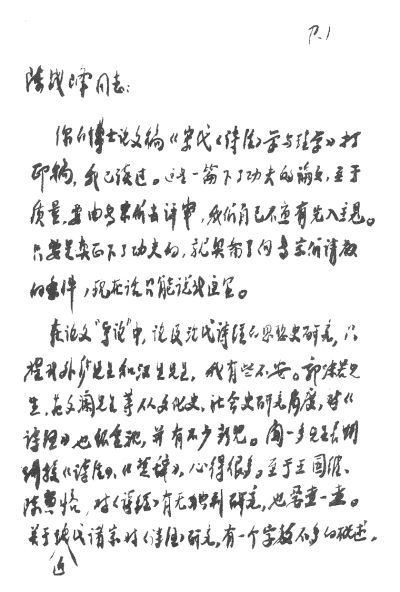 P.1
陈战峰同志：
你的博士论文稿《宋代《诗经》学与理学》打
印稿，我已读过。这是一篇下了功夫的论文，至于
质量，要由专家们去评审，我们自己不应有先入主见。
只要是真正下了功夫的，就具备了向专家们请教
的条件，现在话只能说到这里。
在论文"导论"中，谈及近代诗经的思想史研究，只
提到外庐先生和汉生先生，我有些不安。郭沫若先
生、范文澜先生等从文化史、社会史研究角度，对《
诗经》也很重视，并有不少新见。闻一多先生长期
研探《诗经》、《楚辞》，心得很多。至于王国维、
陈寅恪，对《诗经》有无独到研究，也要查一查。
关于近代诸家对《诗经》研究，有一个字数不多的概述，